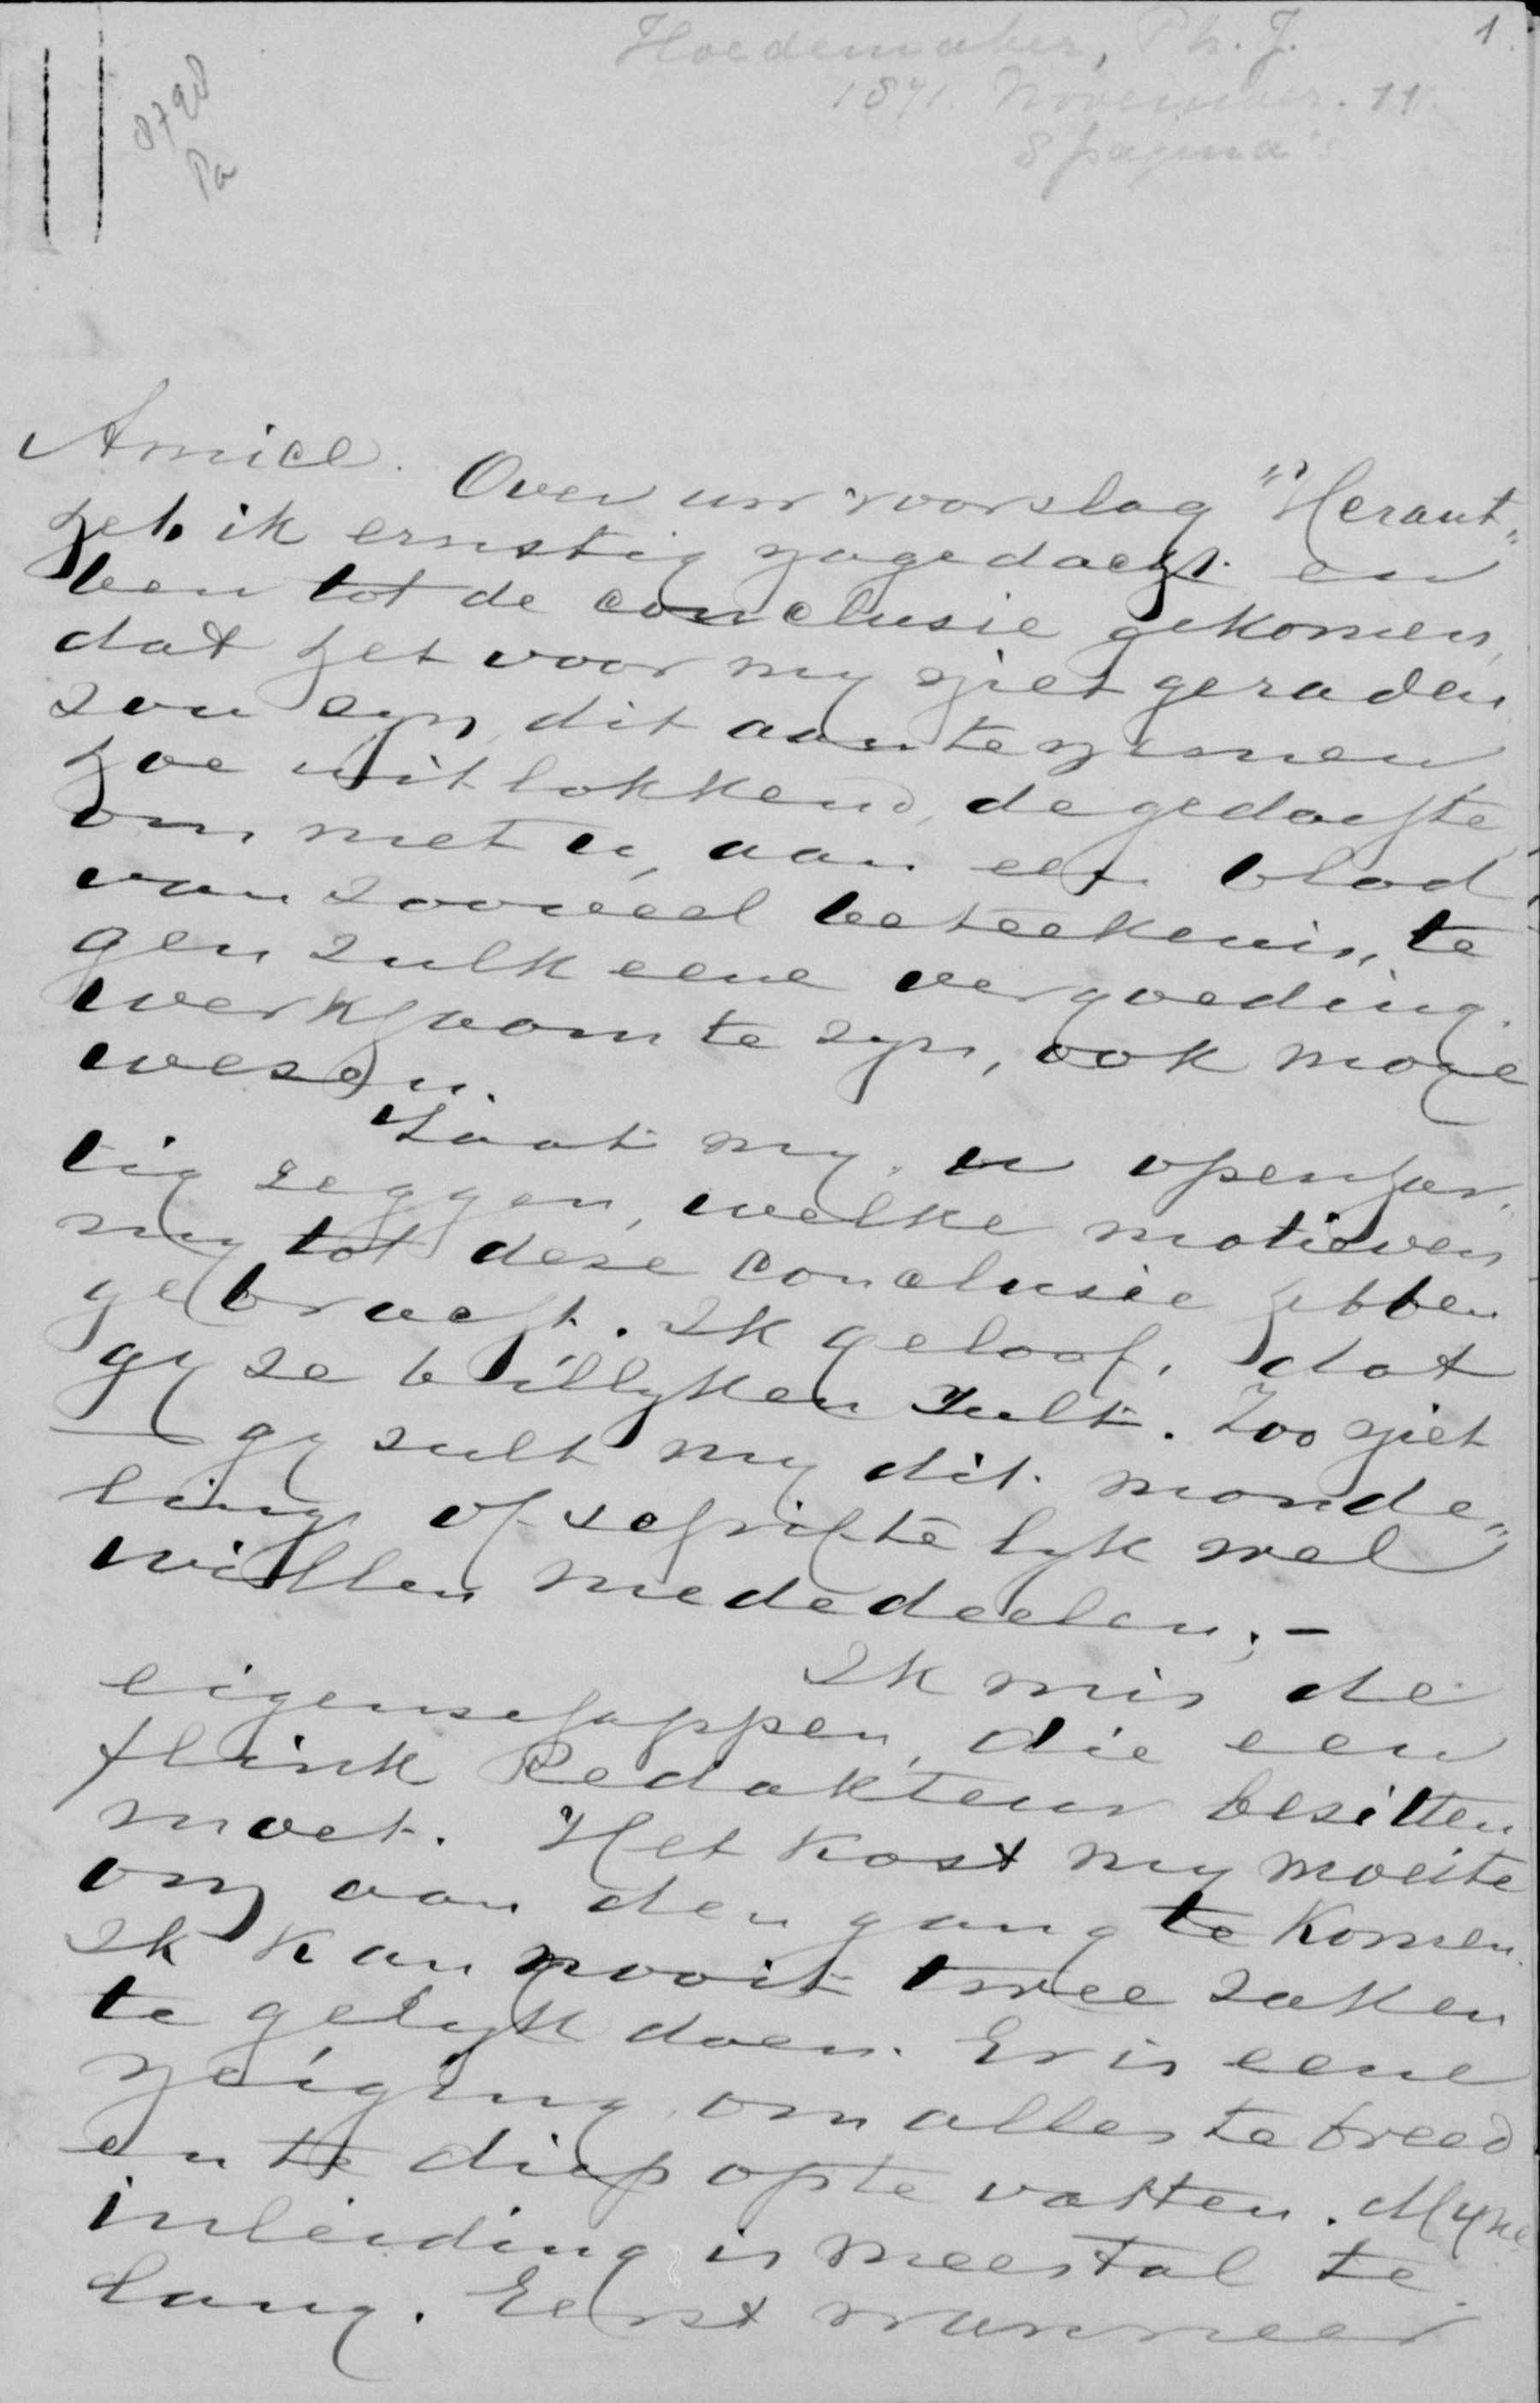 Hoedemaker, Ph. J.
1
1871. November. 11.
8 pagina's
8790
Pa
Amice. Over uw voorslag "Heraut"
heb ik ernstig nagedacht en
ben tot de conclusie gekomen,
dat het voor my niet geraden
zou zyn, dit aan te nemen,
hoe uitlokkend, de gedachte
om met u, aan een blad
van zooveel beteekenis, te
gen zulk eene vergoeding.
werkzaam te zyn, ook moge
wezen.
Laat my, u openhar„
tig zeggen, welke motieven
my tot deze conclusie hebben
gebracht. Ik geloof, dat
gy ze billyken zult. Zoo niet
— gy zult my dit monde„
ling of schriftelyk wel
willen mededeelen; —
Ik mis de
eigenschappen, die een
flink Redakteur bezitten
moet. Het kost my moeite
om aan den gang te komen.
Ik kan nooit twee zaken
te gelyk doen. Er is eene
neiging om alles te breed
en te diep op te vatten. Myne
inleiding is meestal te
lang. Eerst wanneer